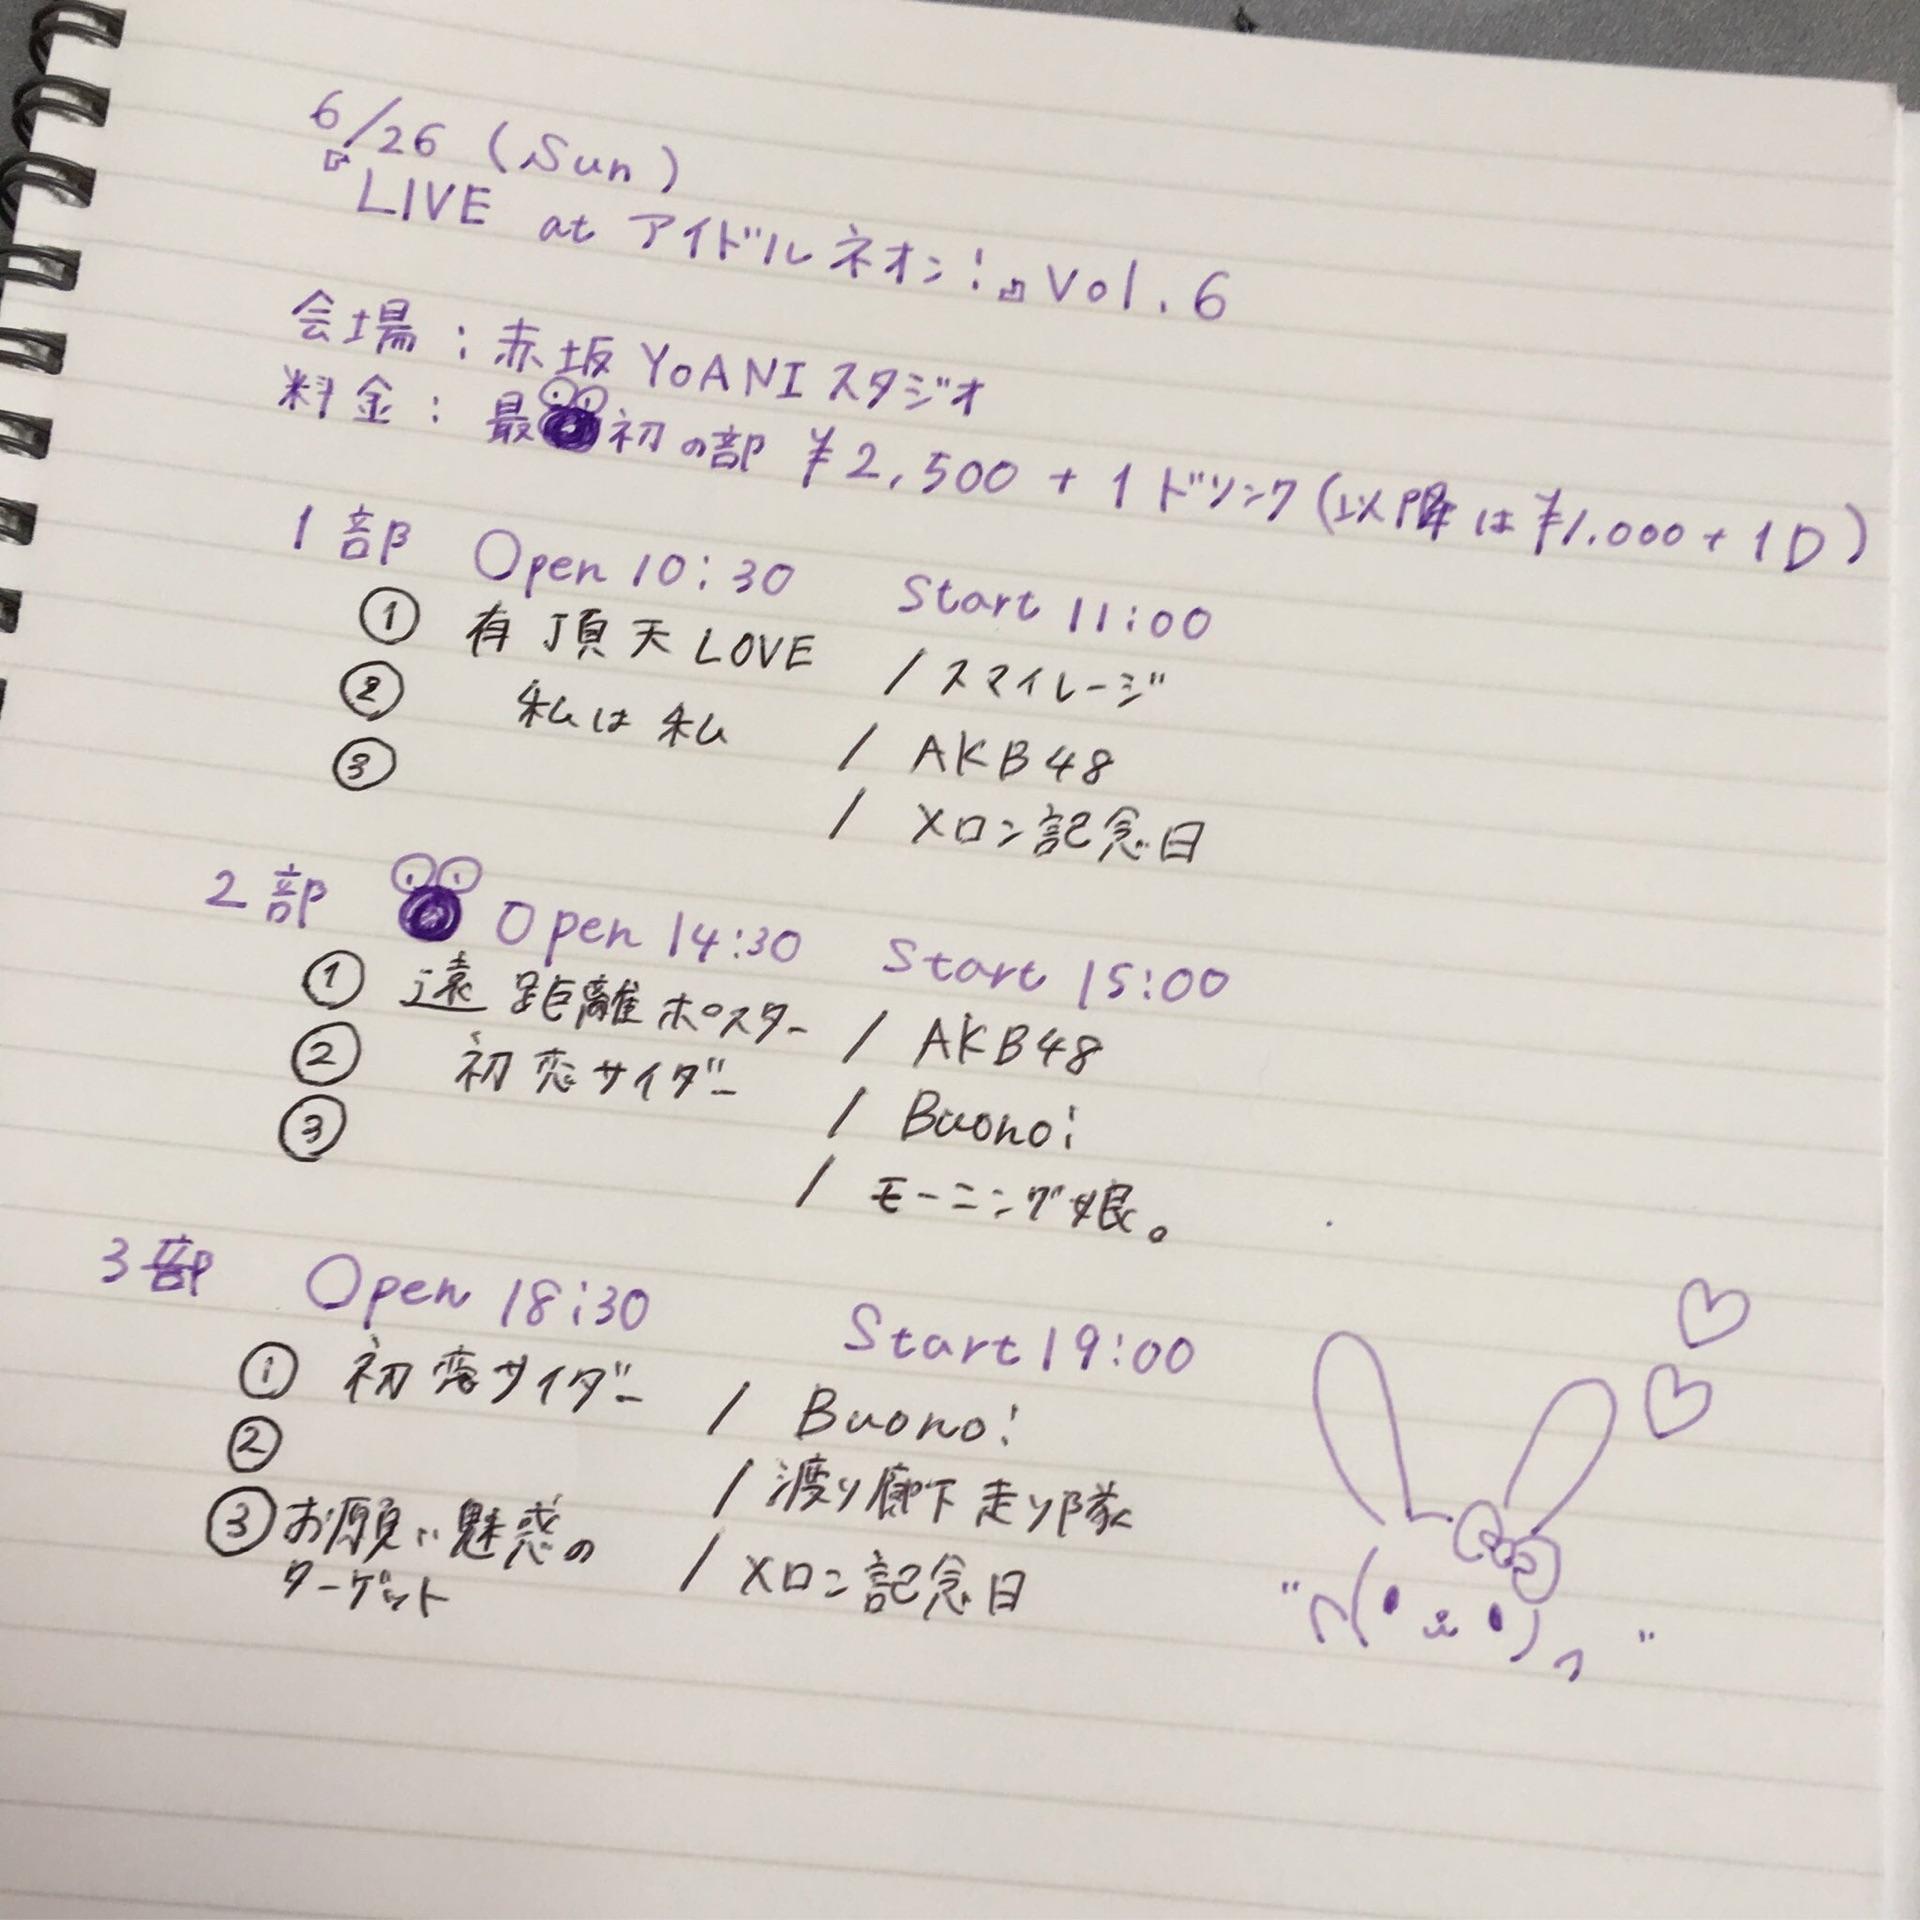 6/26 (Sun)
『LIVE at アイドルネオン!』Vol.6
会場:赤坂YoANIスタジオ
料金:最初の部 ¥2,500+1ドリンク(以降は¥1.000+1D)
1部 Open 10:30 Start 11:00
① 有頂天LOVE /スマイレージ
② 私は私 / AKB48
③ / メロン記念日
2部 Open 14:30 Start 15:00
① 遠距離ポスター / AKB48
② 初恋サイダー / Buono!
③ / モーニング娘。
3部 Open 18:30 Start 19:00
① 初恋サイダー / Buono!
② / 渡り廊下走り隊
③ お願い魅惑の / メロン記念日
ターゲット